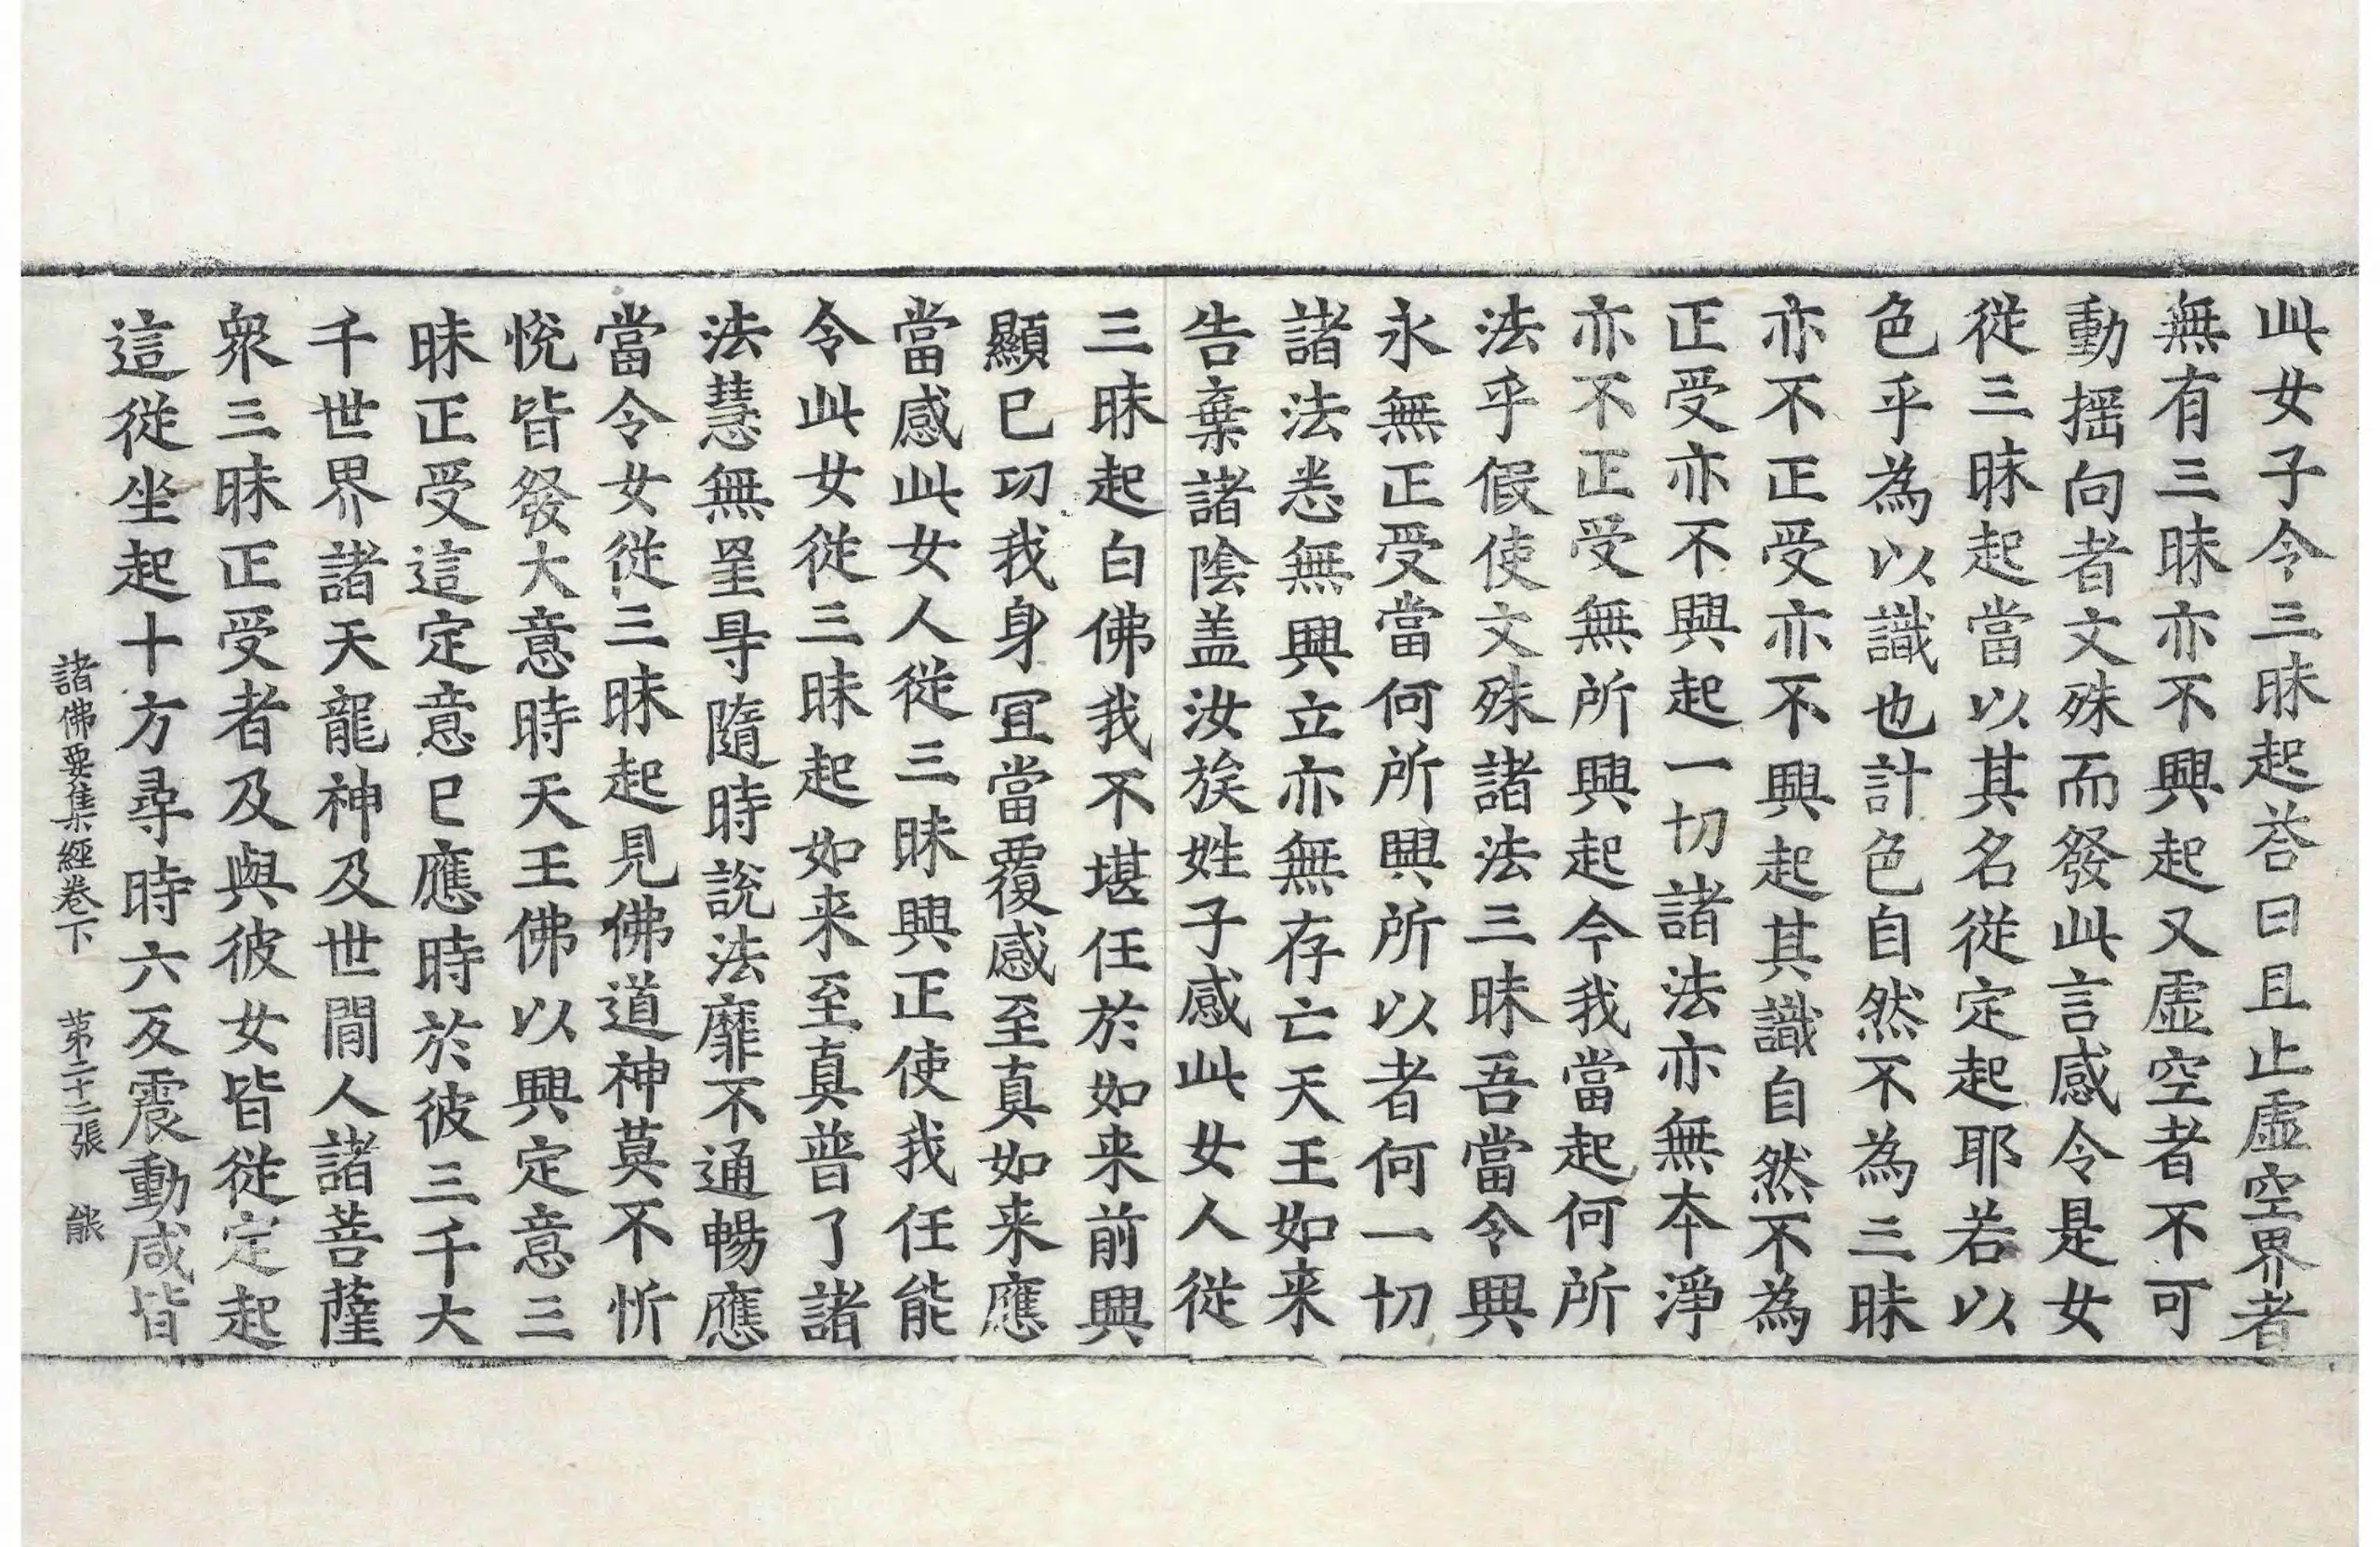 此女子令三昧起荅曰且止虛空界者
無有三昧亦不興起又虛空者不可
動揺向者文殊而發此言感令是女
從三昧起當以其名從定起耶若以
色乎為以識也計色自然不為三昧
亦不正受亦不興起其識自然不為
正受亦不興起一切諸法亦無本淨
亦不正受無所興起今我當起何所
法乎假使文殊諸法三昧吾當令興
永無正受當何所興所以者何一切
諸法悉無興立亦無存亡天王如来
告棄諸陰盖汝族姓子感此女人從
三昧起白佛我不堪任於如来前興
顯已功我身冝當覆感至真如来應
當感此女人從三昧興正使我任能
令此女從三昧起如来至真普了諸
法慧無罣㝵隨時說法靡不通暢應
當令女從三昧起見佛道神莫不忻
悅皆發大意時天王佛以興定意三
昧正受這定意已應時於彼三千大
千世界諸天龍神及世間人諸菩薩
衆三昧正受者及與彼女皆從定起
這從坐起十方尋時六反震動咸皆
諸佛要集經卷下 第二十二張 能